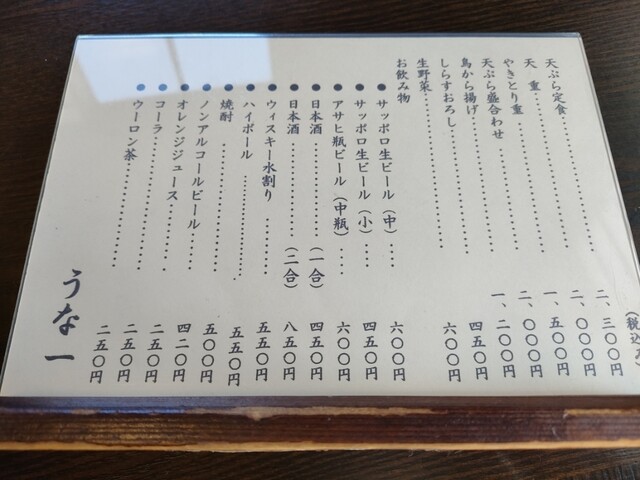 (税込み)
天ぷら定食……………二、三〇〇円
天　重……………二、〇〇〇円
やきとり重……………一、五〇〇円
天ぷら盛合わせ……………二、〇〇〇円
鳥から揚げ……………一、二〇〇円
しらすおろし……………四五〇円
生野菜……………六〇〇円
お飲み物
●サッポロ生ビール(中)……六〇〇円
●サッポロ生ビール(小)……四五〇円
●アサヒ瓶ビール(中瓶)……六〇〇円
●日本酒……………(一合)四五〇円
●日本酒……………(二合)八五〇円
●ウィスキー水割り……………五五〇円
●ハイボール……………五五〇円
●焼酎……………五〇〇円
●ノンアルコールビール……四二〇円
●オレンジジュース……………二五〇円
●コーラ……………二五〇円
●ウーロン茶……………二五〇円
うな一